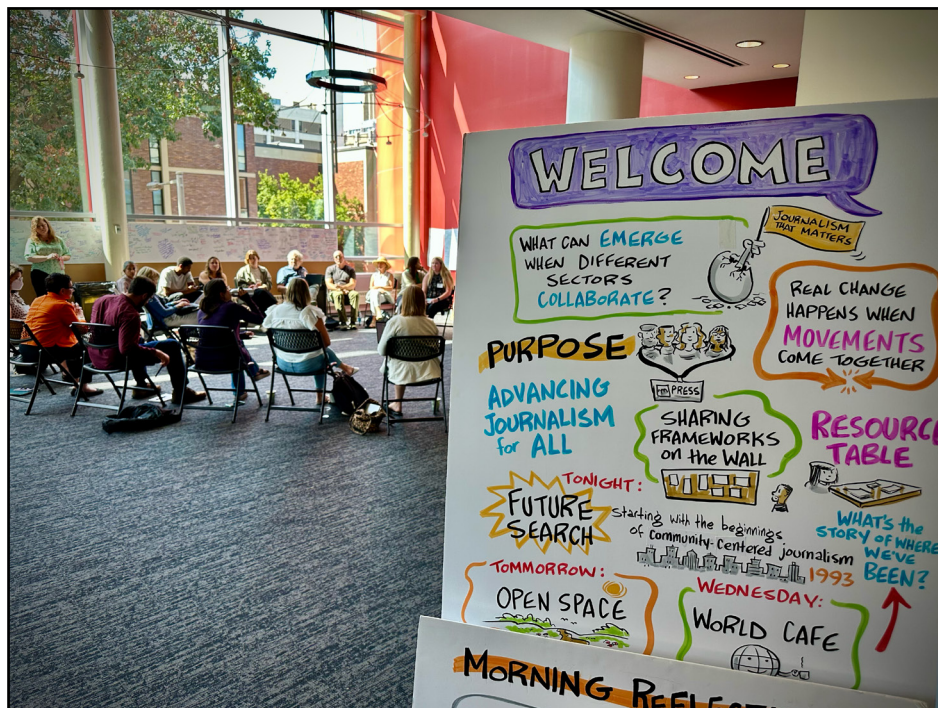 WELCOME
JOURNALISM
THAT MATTERS
WHAT CAN EMERGE
WHEN DIFFERENT
SECTORS
COLLABORATE?
REAL CHANGE
HAPPENS WHEN
MOVEMENTS
COME TOGETHER
PURPOSE
PRESS
ADVANCING
JOURNALISM
for ALL
SHARING
FRAMEWORKS
on the WALL
RESOURCE
TABLE
TONIGHT:
FUTURE
SEARCH
Starting with the beginnings
of community-centered journalism
1993
WHAT'S the
STORY OF WHERE
WE'VE
BEEN?
TOMMORROW:
OPEN SPACE
WEDNESDAY:
WORLD CAFE
MORNING